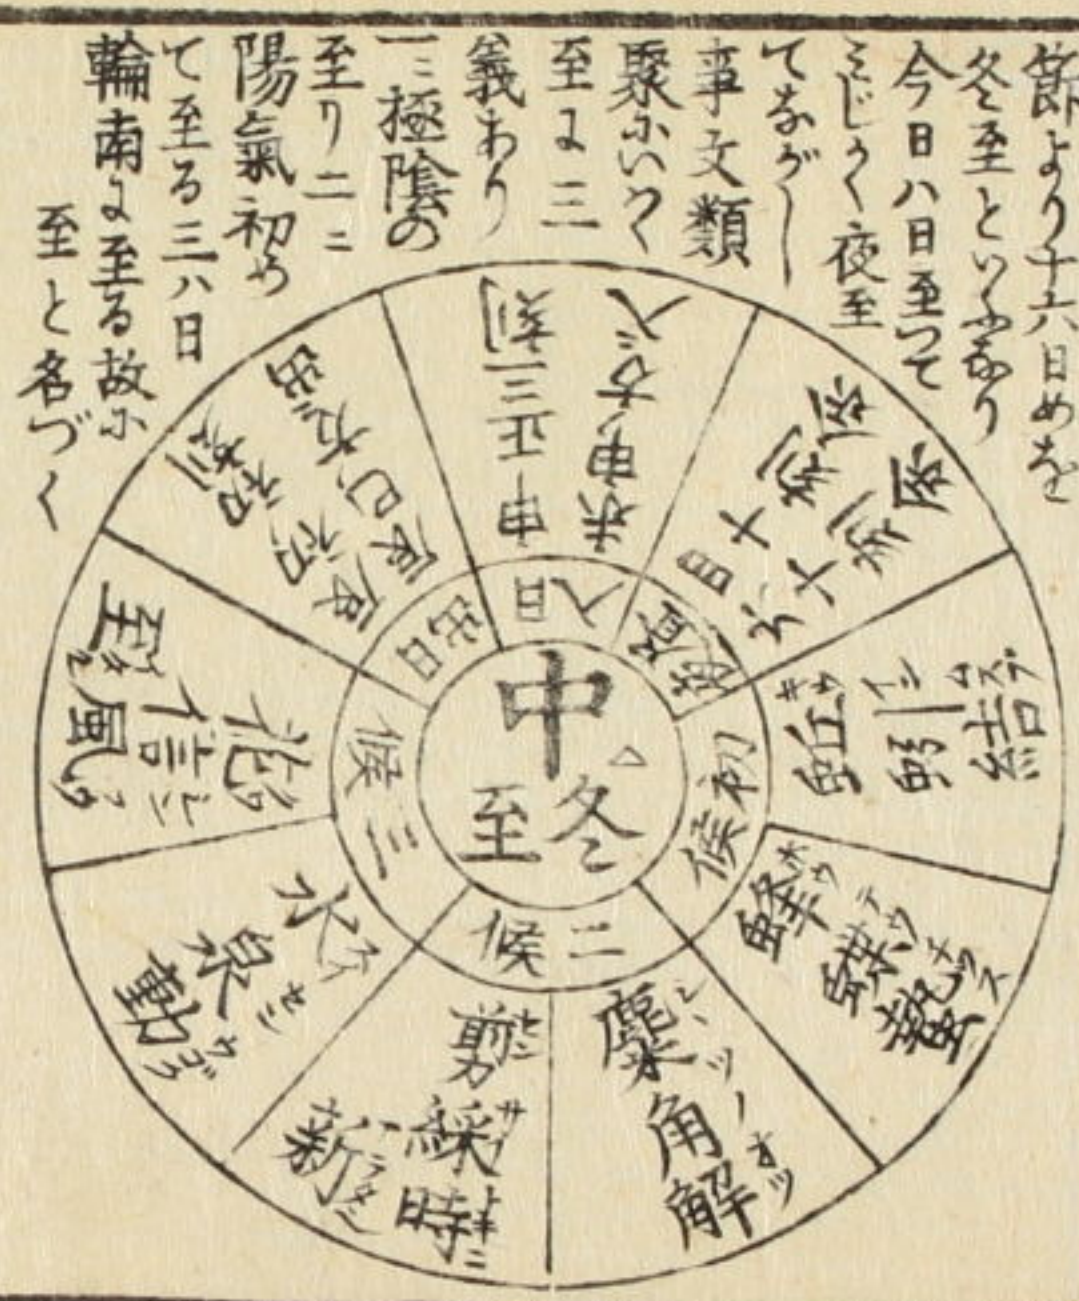 節より十六日めを
冬至といふなり
今日ハ日至つて
みじかく夜至
てながし
事文類
聚にいはく
至に三
義あり
一ニ極陰の
至り二ニ
陽氣初め
て至る三ハ日
輪南に至る故に
至と名づく
中
冬至
初候
蚯蚓結
蜂蝶蟄
二候
麋角解
剪綵時新
三候
水泉動
花信風
出日
辰初初刻
辰巳
入日
申正三刻
未申
昼
四十刻
夜
六十刻